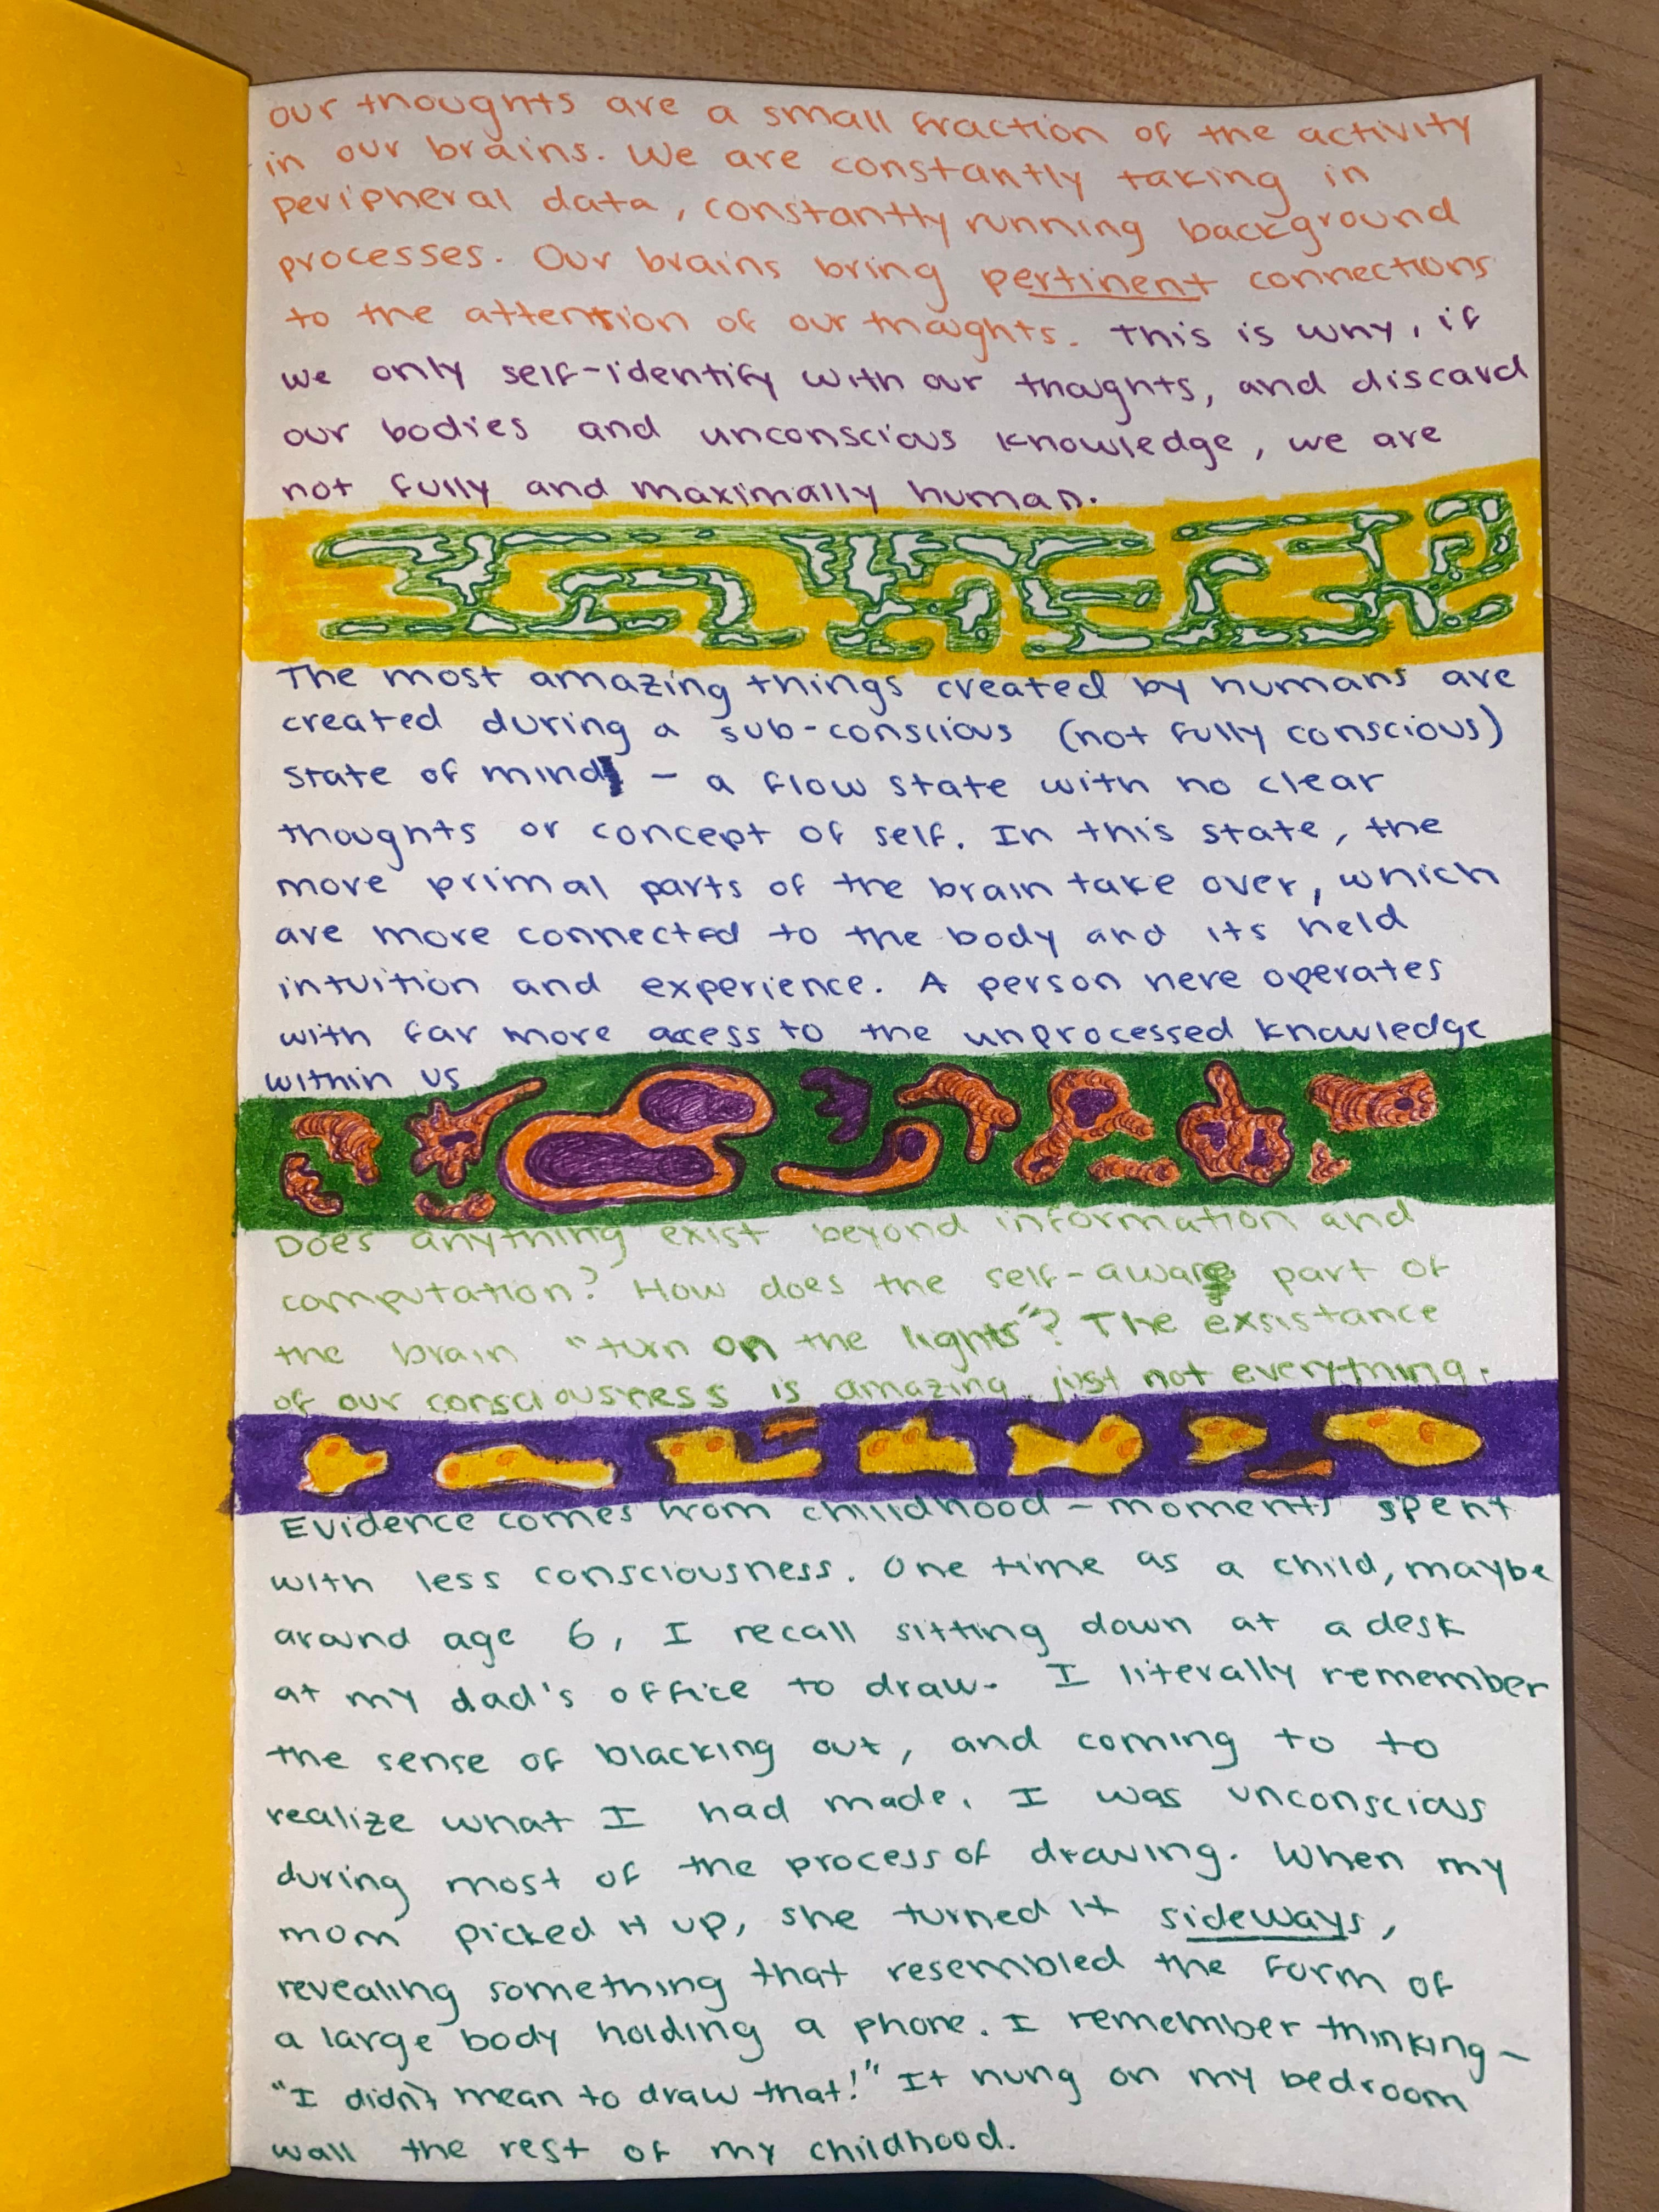 our thoughts are a small fraction of the activity
in our brains. We are constantly taking in
peripheral data, constantly running background
processes. Our brains bring pertinent connections
to the attention of our thoughts. This is why, if
we only self-identify with our thoughts, and discard
our bodies and unconscious knowledge, we are
not fully and maximally human.
The most amazing things created by humans are
created during a sub-conscious (not fully conscious)
state of mind - a flow state with no clear
thoughts or concept of self. In this state, the
more primal parts of the brain take over, which
are more connected to the body and its held
intuition and experience. A person here operates
with far more access to the unprocessed knowledge
within us
Does anything exist beyond information and
computation? How does the self-aware part of
the brain "turn on the lights"? The exsistance
of our consciousness is amazing, just not everything.
Evidence comes from childhood - moments spent
with less consciousness. One time as a child, maybe
around age 6, I recall sitting down at a desk
at my dad's office to draw. I literally remember
the sense of blacking out, and coming to to
realize what I had made. I was unconscious
during most of the process of drawing. When my
mom picked it up, she turned it sideways,
revealing something that resembled the form of
a large body holding a phone. I remember thinking -
"I didn't mean to draw that!" It hung on my bedroom
wall the rest of my childhood.